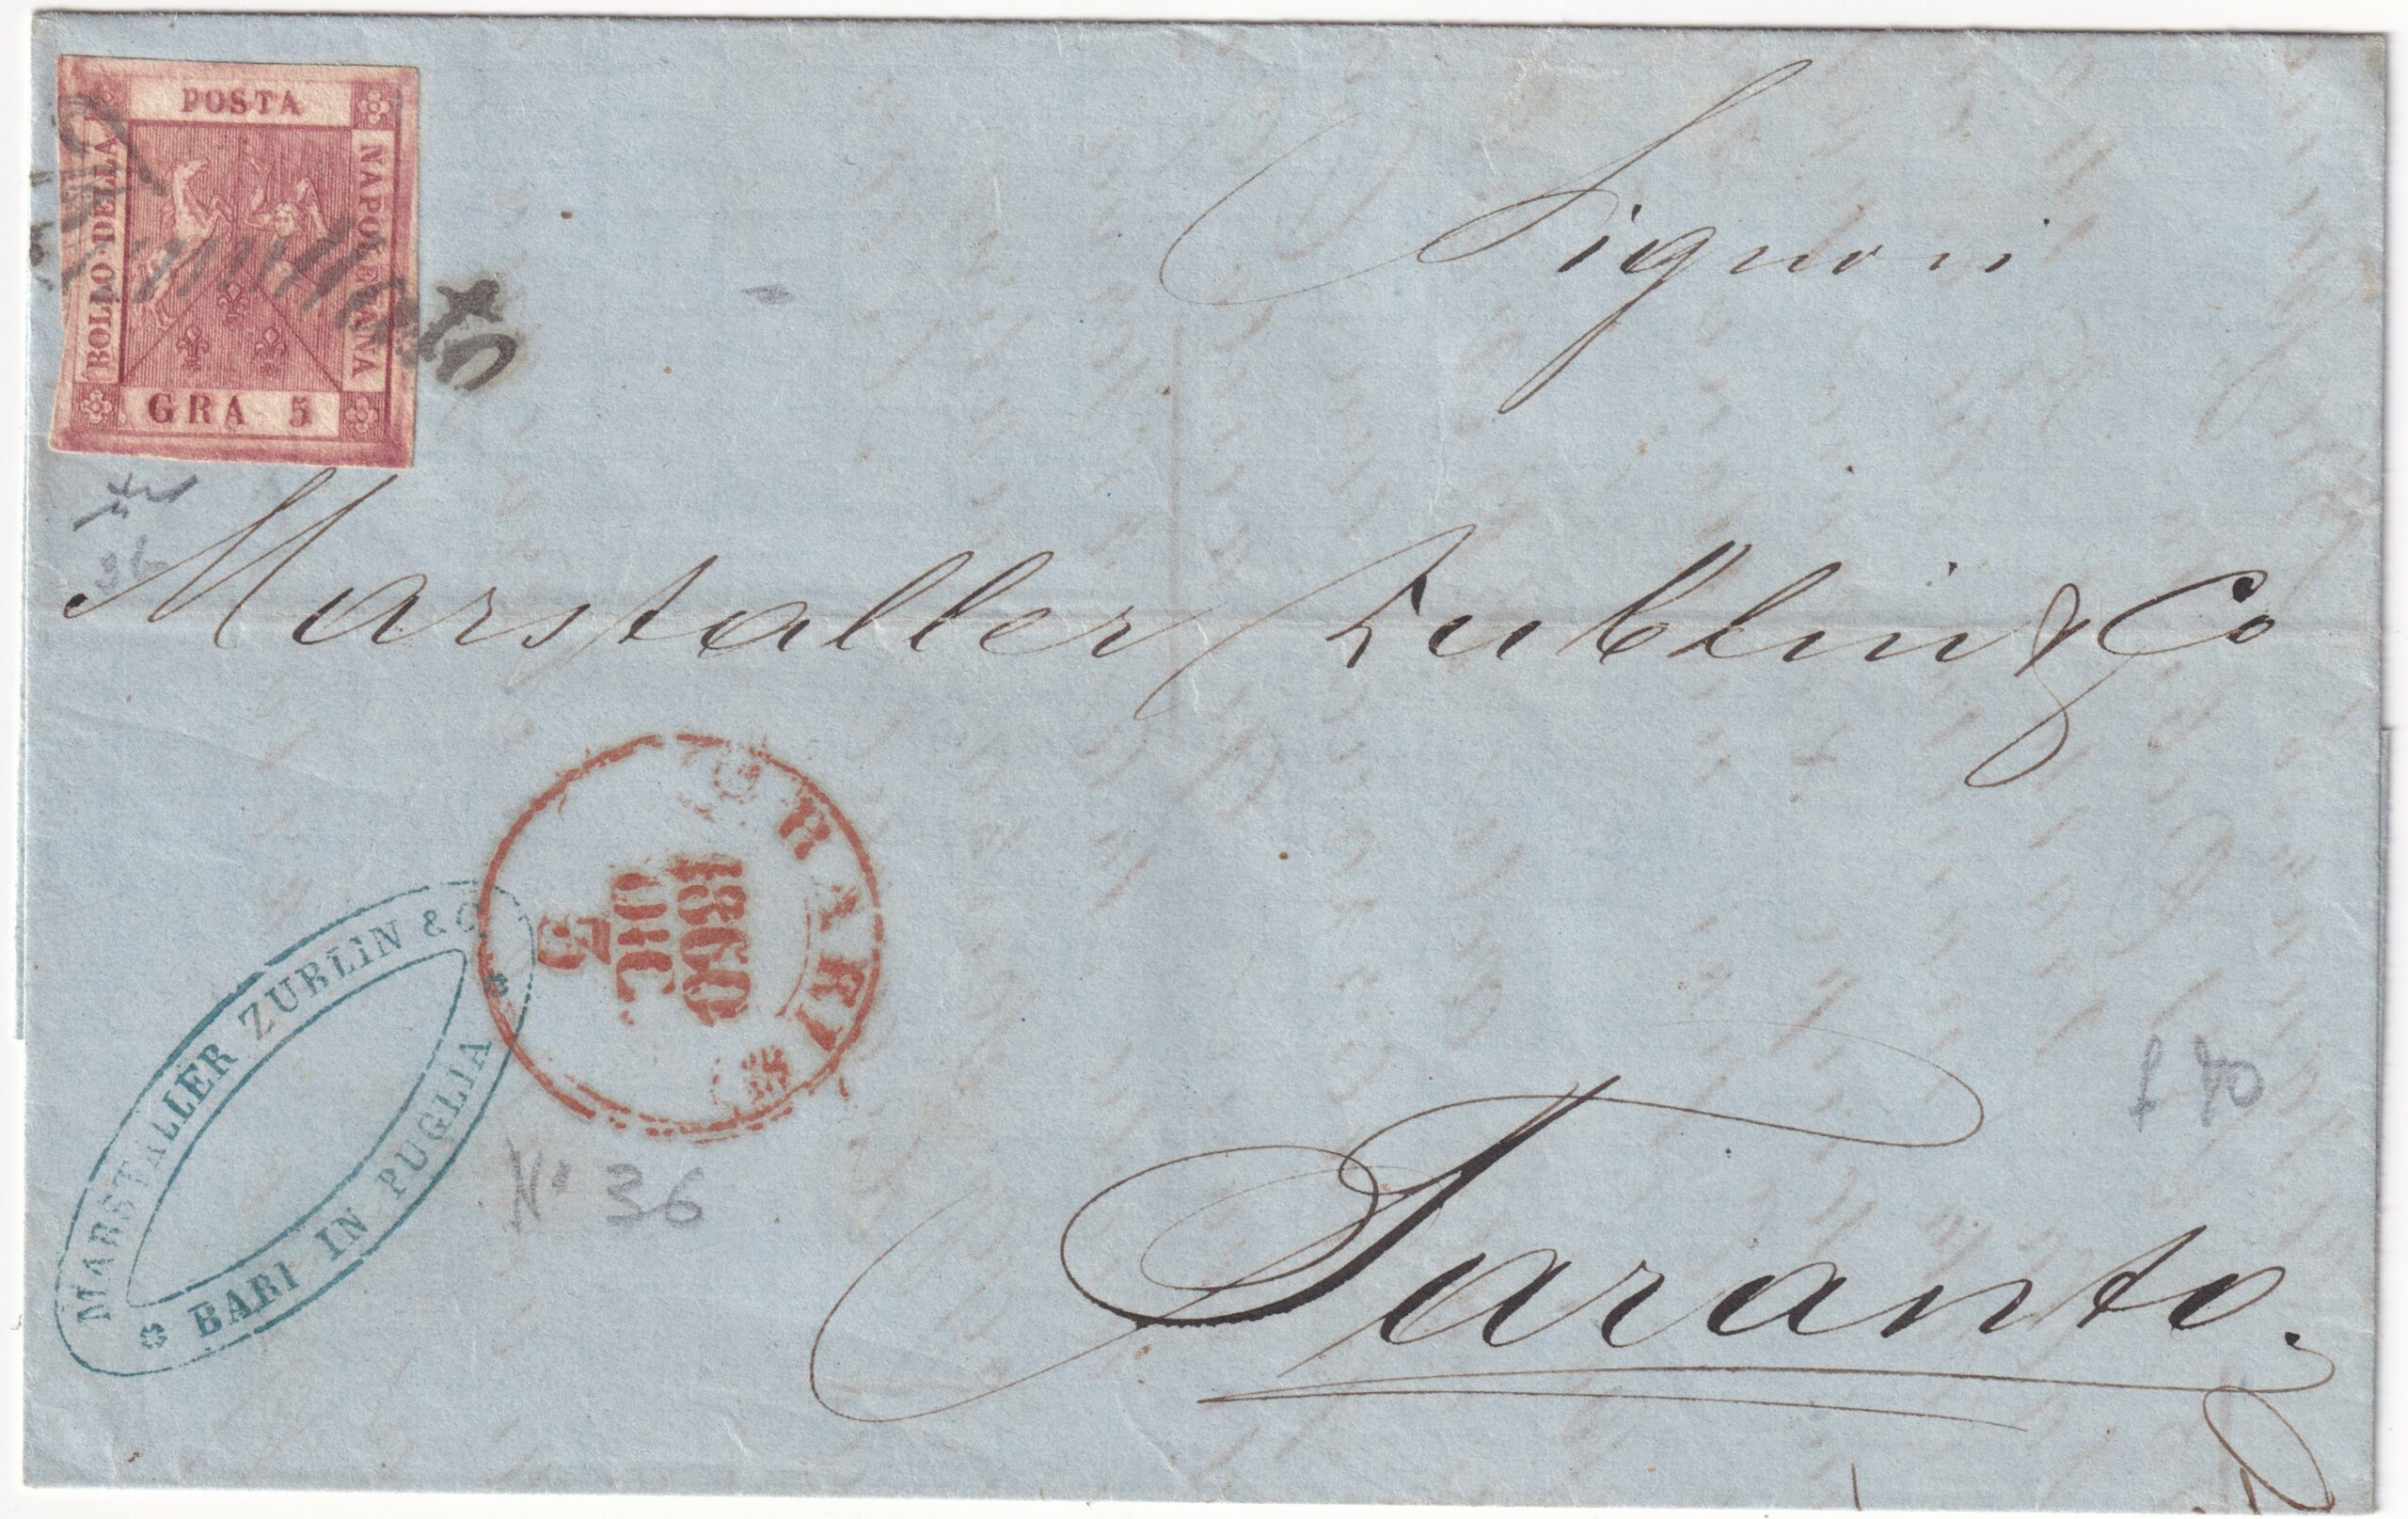 POSTA
BOLLO DELLA
NAPOLETANA
GRA 5
Annullato
Signori
Marstaller Zublin & Co
BARI
1860
DIC
MARSTALLER ZUBLIN & C.
BARI IN PUGLIA
No 36
Taranto.